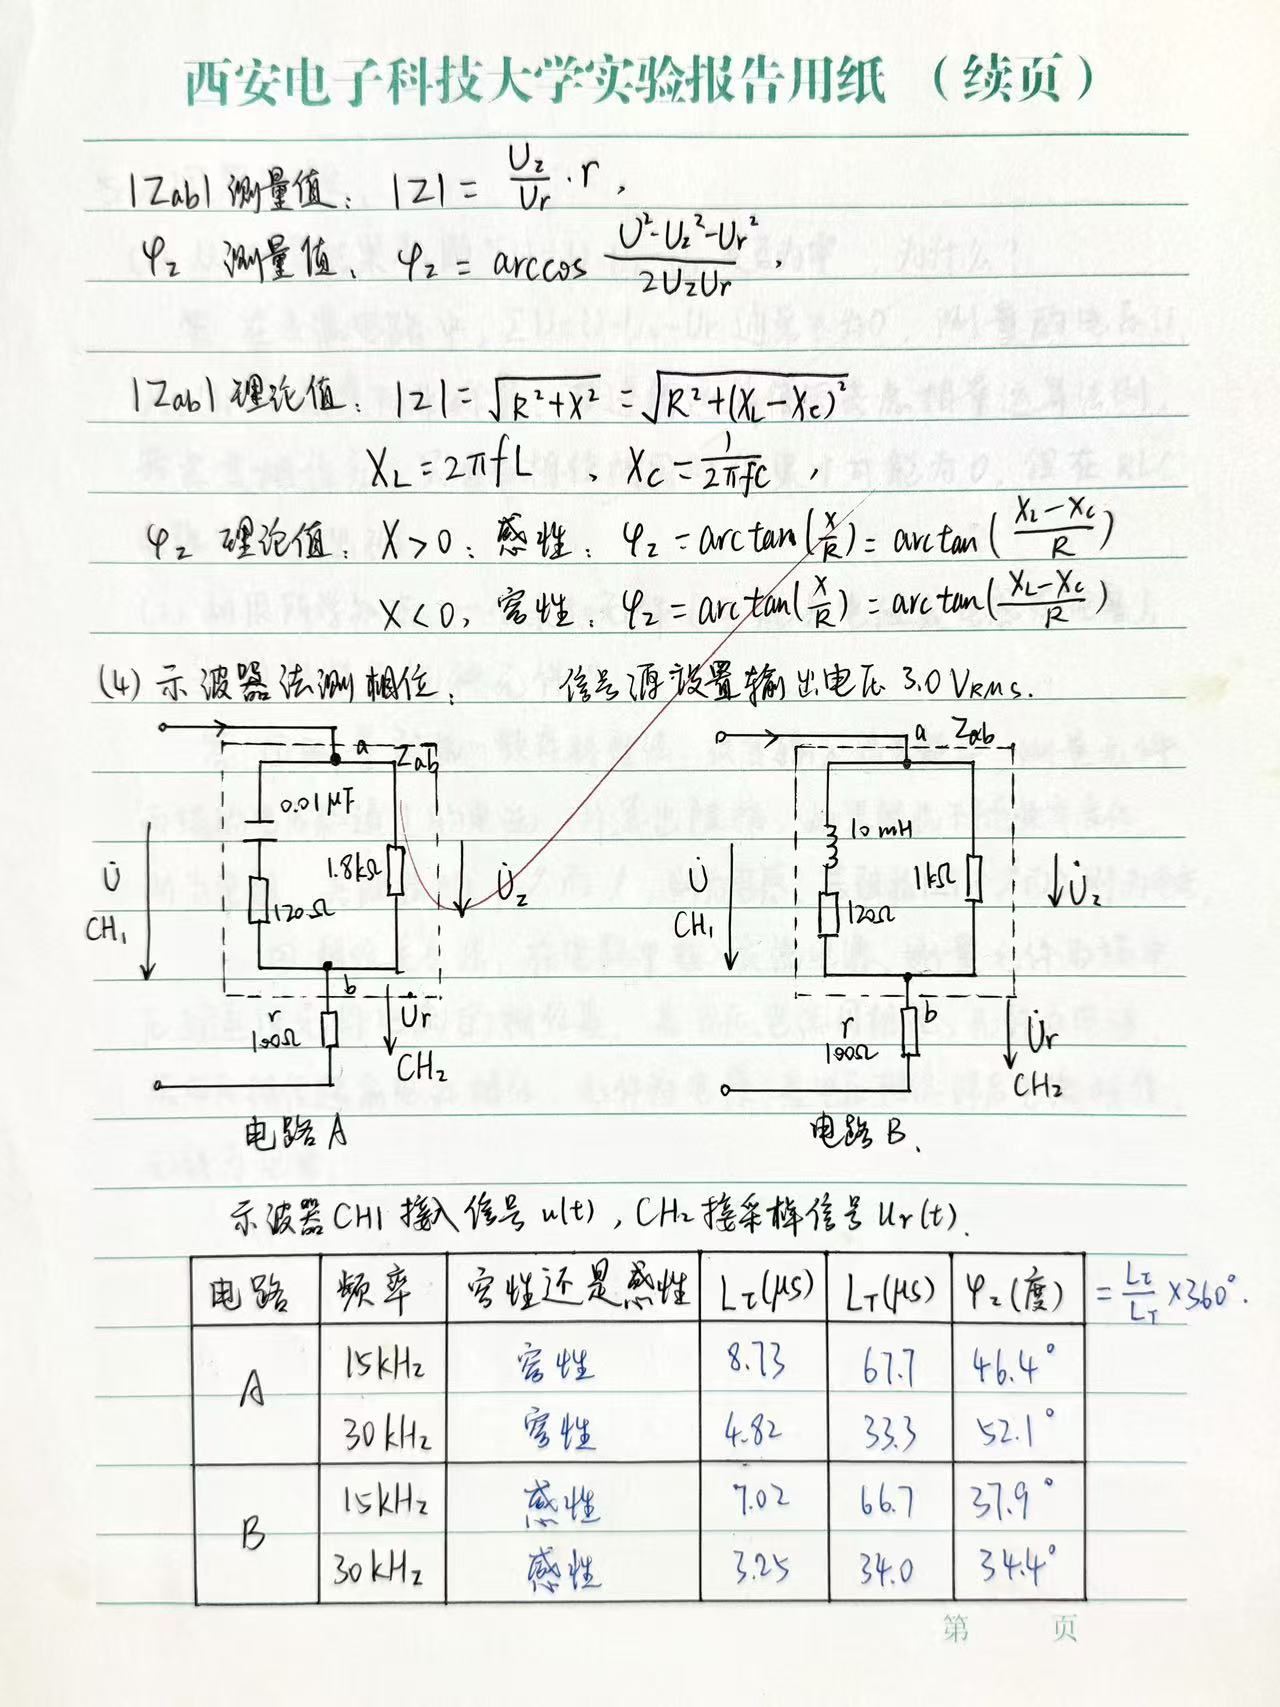 西安电子科技大学实验报告用纸 （续页）
|Zab| 测量值: |Z| = U₂/Uᵣ · r,
φ₂ 测量值: φ₂ = arccos (U²-U₂²-Uᵣ²)/(2U₂Uᵣ),
|Zab| 理论值: |Z| = √(R²+X²) = √(R²+(X_L-X_C)²)
X_L = 2πfL 、 X_C = 1/(2πfC),
φ₂ 理论值: X>0: 感性: φ₂ = arctan(X/R) = arctan((X_L-X_C)/R)
X<0, 容性: φ₂ = arctan(X/R) = arctan((X_L-X_C)/R)
(4) 示波器法测相位: 信号源设置输出电压 3.0 VRMS.
a Zab a Zab
0.01μF 10mH
1.8kΩ 1kΩ
U̇ CH₁ 120Ω U̇₂ U̇ CH₁ 120Ω U̇₂
b b
r 100Ω U̇r CH₂ r 100Ω U̇r CH₂
电路A 电路B.
示波器CH1接入信号u(t), CH₂接采样信号Ur(t).
电路 频率 容性还是感性 Lτ(μs) L_T(μs) φ₂(度) = Lτ/L_T ×360°.
A 15kHz 容性 8.73 67.7 46.4°
30kHz 容性 4.82 33.3 52.1°
B 15kHz 感性 7.02 66.7 37.9°
30kHz 感性 3.25 34.0 34.4°
第 页